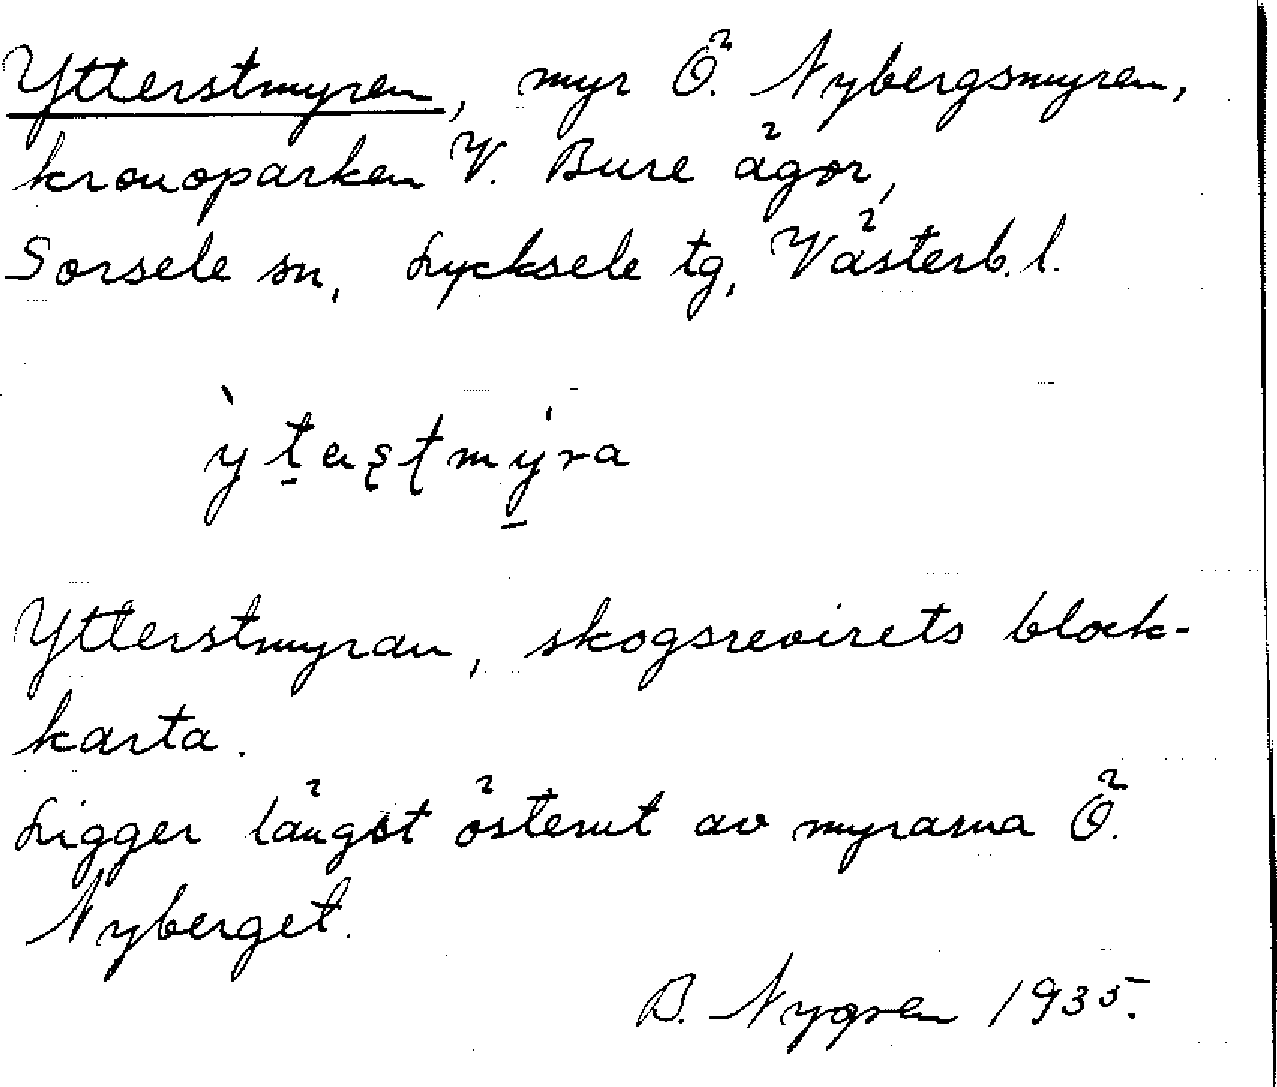 Ytterstmyren, myr Ö. Nybergsmyren,
kronoparken V. Bure ägor,
Sorsele sn, Lycksele tg, Västerb. l.
Ytterstmyran, skogsrevirets block-
karta.
Ligger längst österut av myrarna Ö.
Nyberget.
B. Nygren 1935.